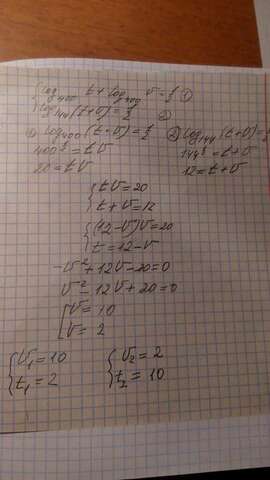 {log₄₀₀ t + log₄₀₀ v = ½ ①
{log₁₄₄(t+v) = ½ ②
① log₄₀₀(t·v) = ½ ② log₁₄₄(t+v) = ½
400^½ = t v 144^½ = t+v
20 = t v 12 = t+v
{t v = 20
{t + v = 12
{(12-v)v = 20
{t = 12-v
-v² + 12v - 20 = 0
v² - 12v + 20 = 0
[v = 10
[v = 2
{v₁ = 10 {v₂ = 2
{t₁ = 2 {t₂ = 10